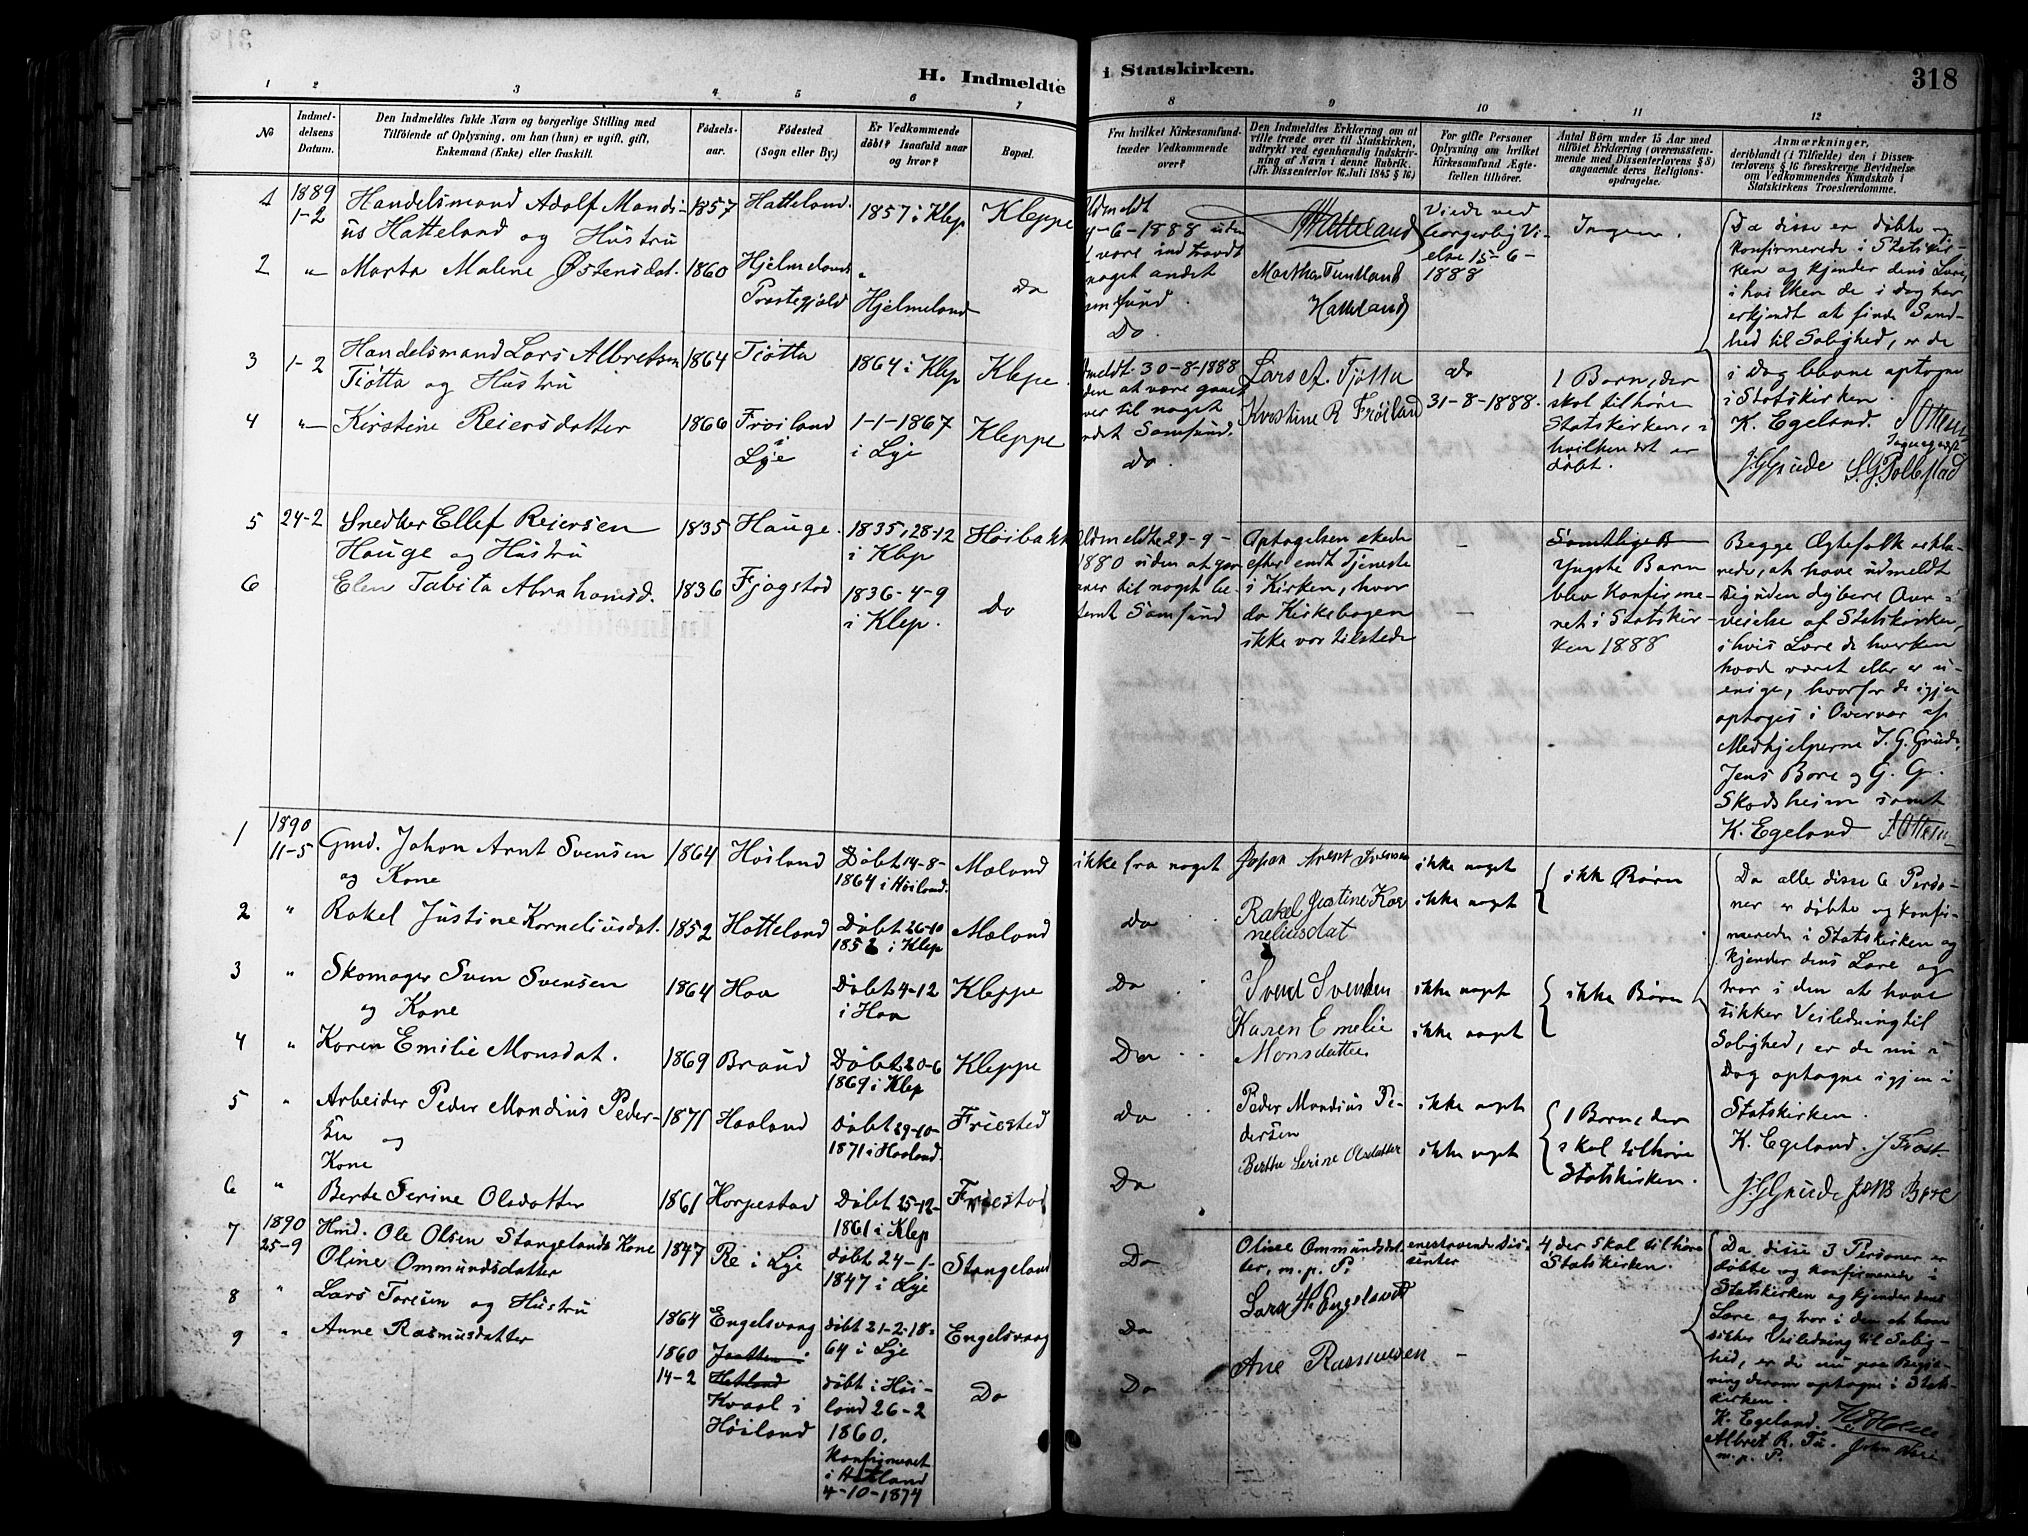 H. Indmeldte i Statskirken.
318
1 2 3 4 5 6 7 8 9 10 11 12
No
Indmel-
delsens
Datum.
Den Indmeldtes fulde Navn og borgerlige Stilling med
Tilföiende af Oplysning, om han (hun) er ugift, gift,
Enkemand (Enke) eller fraskilt.
Födsels-
aar.
Födested
(Sogn eller By.)
Er Vedkommende
döbt? Isaafald naar
og hvor?
Bopæl.
Fra hvilket Kirkesamfund
træder Vedkommende
over?
Den Indmeldtes Erklæring om at
ville træde over til Statskirken,
udtrykt ved egenhændig Indskriv-
ning af Navn i denne Rubrik.
(Jfr. Dissenterlov 16. Juli 1845 § 16.)
For gifte Personer
Oplysning om hvilket
Kirkesamfund Ægte-
fællen tilhörer.
Antal Börn under 15 Aar med
tilföiet Erklæring (overensstem-
mende med Dissenterlovens § 8)
angaaende deres Religions-
opdragelse.
Anmærkninger,
deriblandt (i Tilfælde) den i Dissen-
terlovens § 16 foreskrevne Bevidnelse
om Vedkommendes Kundskab i
Statskirkens Troesherdomme.
1
1889
1-2
Handelsmand Adolf Mandi-
us Hatteland og Hustru
1857
Hatteland.
1857 i Klep
Kleppe
Udmeldt
-6-1888 uden
at være indtraadt
noget andet
Samfund.
Hatteland
Viede ved
borgerlig Vi-
else 15-6-
1888
Ingen.
Da disse er døbte og
konfirmerede i Statskir-
ken og kjender dens Lære,
i hvilken de i dag har
erkjendt at finde Sand-
hed til Salighed, er de
2
"
Marta Malene Østensdat.
1860
Hjelmelands
Prestegjeld
"
Hjelmeland
Do
Do.
Martha Tuntland
Hatteland
3
1-2
Handelsmand Lars Albretsen
Tiøtta og Hustru
1864
Tiøtta
1864 i Klep
Kleppe.
Udmeldt 30-8-1888
uden at være gaaet
over til noget
andet Samfund.
Lars A. Tjøtta
Do
31-8-1888.
1 Barn, der
skal tilhøre
Statskirken, i
hvilken det er
døbt.
i dag blevne optagne
i Statskirken.
K. Egeland.
J G Grude
4
"
Kirstine Reiersdatter
1866
Frøiland
i
Lye
1-1-1867
i Lye
Kleppe
Do.
Kristine R Frøiland
5
24-2
Snedker Ellef Reiersen
Hauge og Hustru
1835
Hauge.
1835, 28-12
i Klep
Høibakk
Udmeldte 29-9-
1880 uden at gaa
over til noget be-
stemt Samfund
Optagelsen skede
efter endt Tjeneste
i Kirken, hvor
da Kirkebogen
ikke var tilstede
-
Samtlige B
Yngste Barn
blev konfirme-
ret i Statskir-
ken 1888
Begge Ægtefolk erklæ-
rede, at have udmeldt
sig uden dybere Over-
veielse af Statskirken,
i hvis Lære de hverken
havde været eller er u-
enige, hvorfor de igjen
optoges i Overvær af
Medhjelperne J. G. Grude,
Jens Bore og G. G.
Skadsheim samt
K. Egeland
6
Elen Tabita Abrahamsd.
1836
Fjogstad
1836-4-9
i Klep.
Do
-
1
1890
11-5
Gmd. Johan Arnt Svensen
og Kone
1864
Høiland
Døbt 14-8-
1864 i Høiland.
Mæland
ikke fra noget
Johan Arent Svensen
ikke noget
ikke Børn
Da alle disse 6 Perso-
ner er døbte og konfir-
merede i Statskirken og
kjender dens Lære og
tror i den at have
sikker Veiledning til
Salighed, er de nu i
Dag optagne igjen i
Statskirken.
K. Egeland.
J G Grude Jens Bore
2
"
Rakel Justine Korneliusdat.
1852
Hatteland
Døbt 26-10
1852 i Klep
Mæland
Do
Rakel Justine Kor
neliusdat
ikke noget
3
"
Skomager Sven Svensen
og Kone
1864
Haa
Døbt 4-12
i Haa
Kleppe
Do
Svend Svendsen
ikke noget
ikke Børn
4
"
Karen Emilie Monsdat.
1869
Braud
Døbt 20-6
1869 i Klep
Kleppe
Do
Karen Emelie
Monsdatter
ikke noget
5
"
Arbeider Peder Mandius Peder-
sen og
Kone
1871
Haaland
Døbt 29-10-
1871 i Haaland.
Friestad
Do
Peder Mandius Pe-
dersen
ikke noget
1 Barn, der
skal tilhøre
Statskirken.
6
"
Berte Serine Olsdatter
1861
Horpestad
Døbt 25-12-
1861 i Klep
Friestad
Do
Berthe Serine Olsdatter
ikke noget
7
1890
25-9
Hmd. Ole Olsen Stangelands Kone
Oline Ommundsdatter
1847
Re i Lye
døbt 24-1-
1847 i Lye
Stangeland
Do
Oline Ommundsdat
ter, m. p. P.
enestaaende Dis-
senter
4, der skal tilhøre
Statskirken.
Da disse 3 Personer er
døbte og konfirmerede i
Statskirken og kjender dens
Lære og tror i den at have
sikker Veiledning til Salig-
hed, er de nu paa Begjæ-
ring derom optagne i Stats-
kirken.
K. Egeland.
Albret R. Tu.
m. p. P.
8
"
Lars Toresen og Hustru
1864
Engelsvaag
døbt 21-2-18-
64 i Lye
Engelsvaag
Do
-
9
"
Anne Rasmusdatter
1860
14-2
Jaatten i
Hetland
Kvaal i
Høiland
døbt i Høi-
land 26-2
1860.
Konfirmeret
i Hetland
4-10-1874
Do
Do
Ane Rasmusen
-